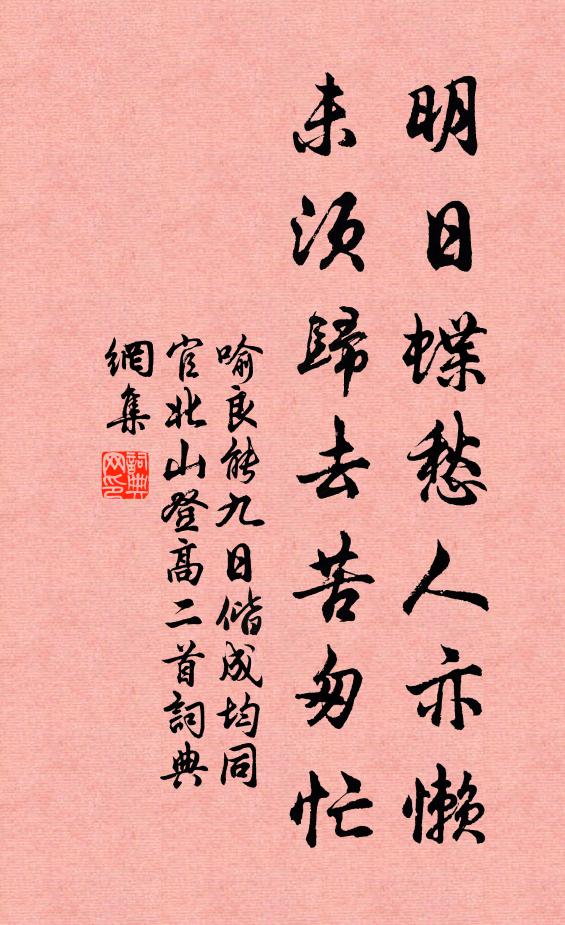 明日蝶愁人亦懶
未須歸去苦匆忙
喻良能九日偕成均同
官北山登高二首詞典
網集
詞典
网印